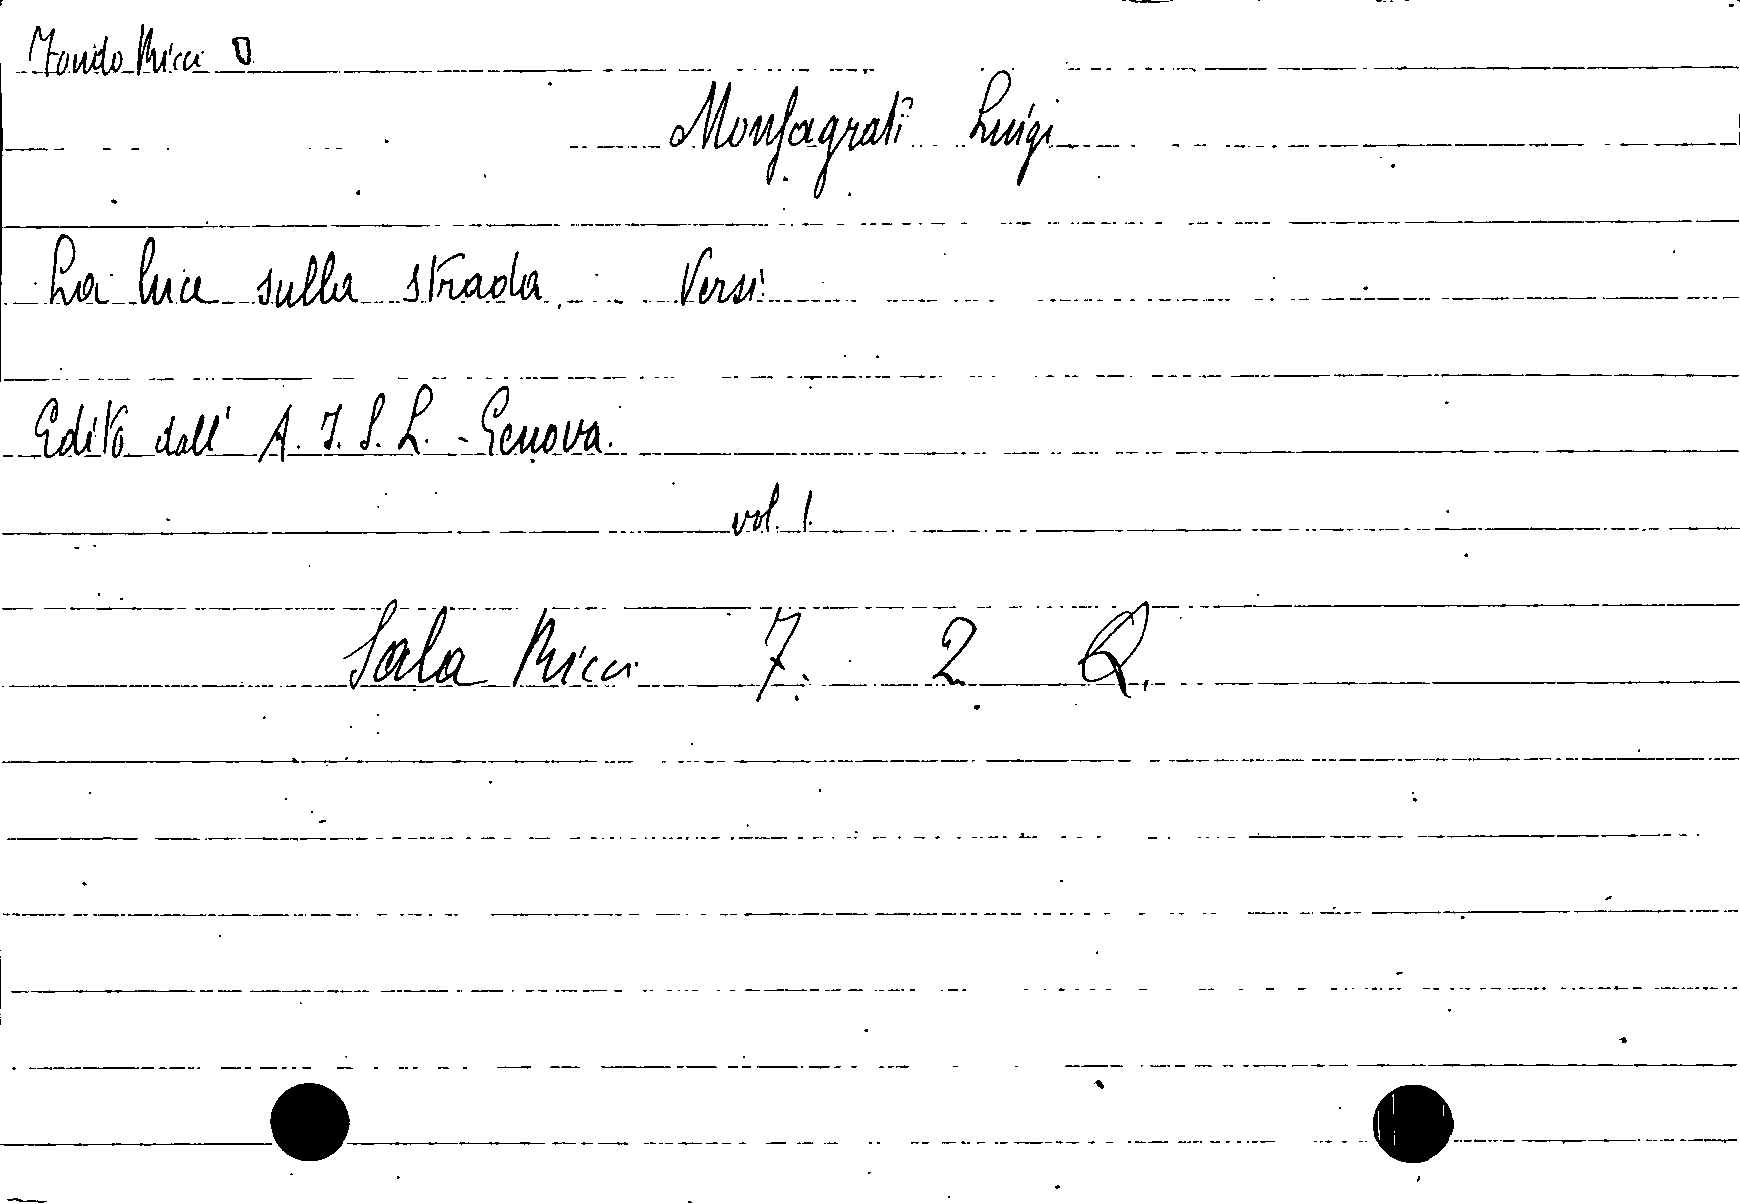 Fondo Ricci
Monfagrati Luigi
La luce sulla strada. Versi
Edito dall' A.I.S.L. - Genova.
vol. 1.
Sala Ricci 7. 2. Q.